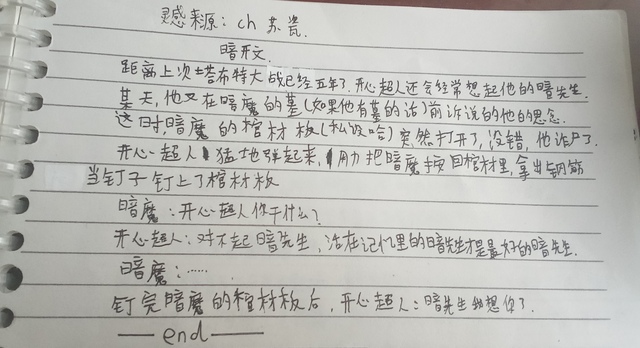 灵感来源：ch 苏瓷.
暗开文.
距离上次士塔布特大战已经五年了.开心超人还会经常想起他的暗先生.
某天,他又在暗魔的墓(如果他有墓的话)前诉说的他的思念.
这时,暗魔的棺材板(私设哈)突然打开了,没错,他诈尸了.
开心超人猛地弹起来,用力把暗魔按回棺材里,拿出钢筋
当钉子钉上了棺材板
暗魔：开心超人你干什么?
开心超人：对不起暗先生,活在记忆里的暗先生才是最好的暗先生.
暗魔：……
钉完暗魔的棺材板后,开心超人：暗先生我想你了.
——end——